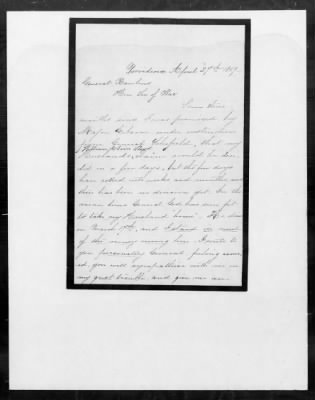 Providence April 27th 1869
General Rawlins
Hon Sec of War
Some three
months since I was promised by
Major Gibson under instructions
from General Schofield, that my
Husbands claim would be set-
tled in a few days, but the few days
have rolled into weeks and months and
there has been no decision yet. In the
mean time General God has seen fit
to take my Husband home. He died
on March 17th, and I stand in need
of this money owing him. I write to
you personally General feeling assur-
ed, you will sympathise with me in
my great trouble and give me an